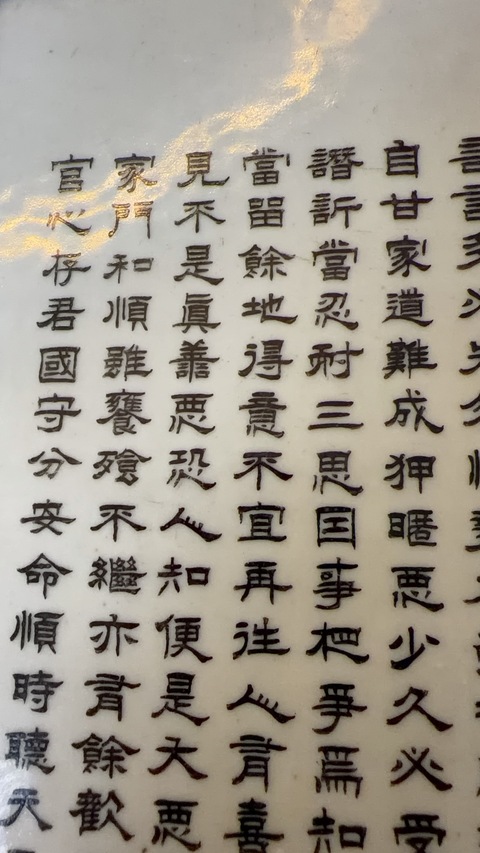 自甘家道難成狎暱悪少久必受
譖訴當忍耐三思囙事相爭焉知
當留餘地得意不宜再往人有喜
見不是眞善悪恐人知便是大悪
家門和順雖饔飧不繼亦有餘歡
官心存君國守分安命順時聽天